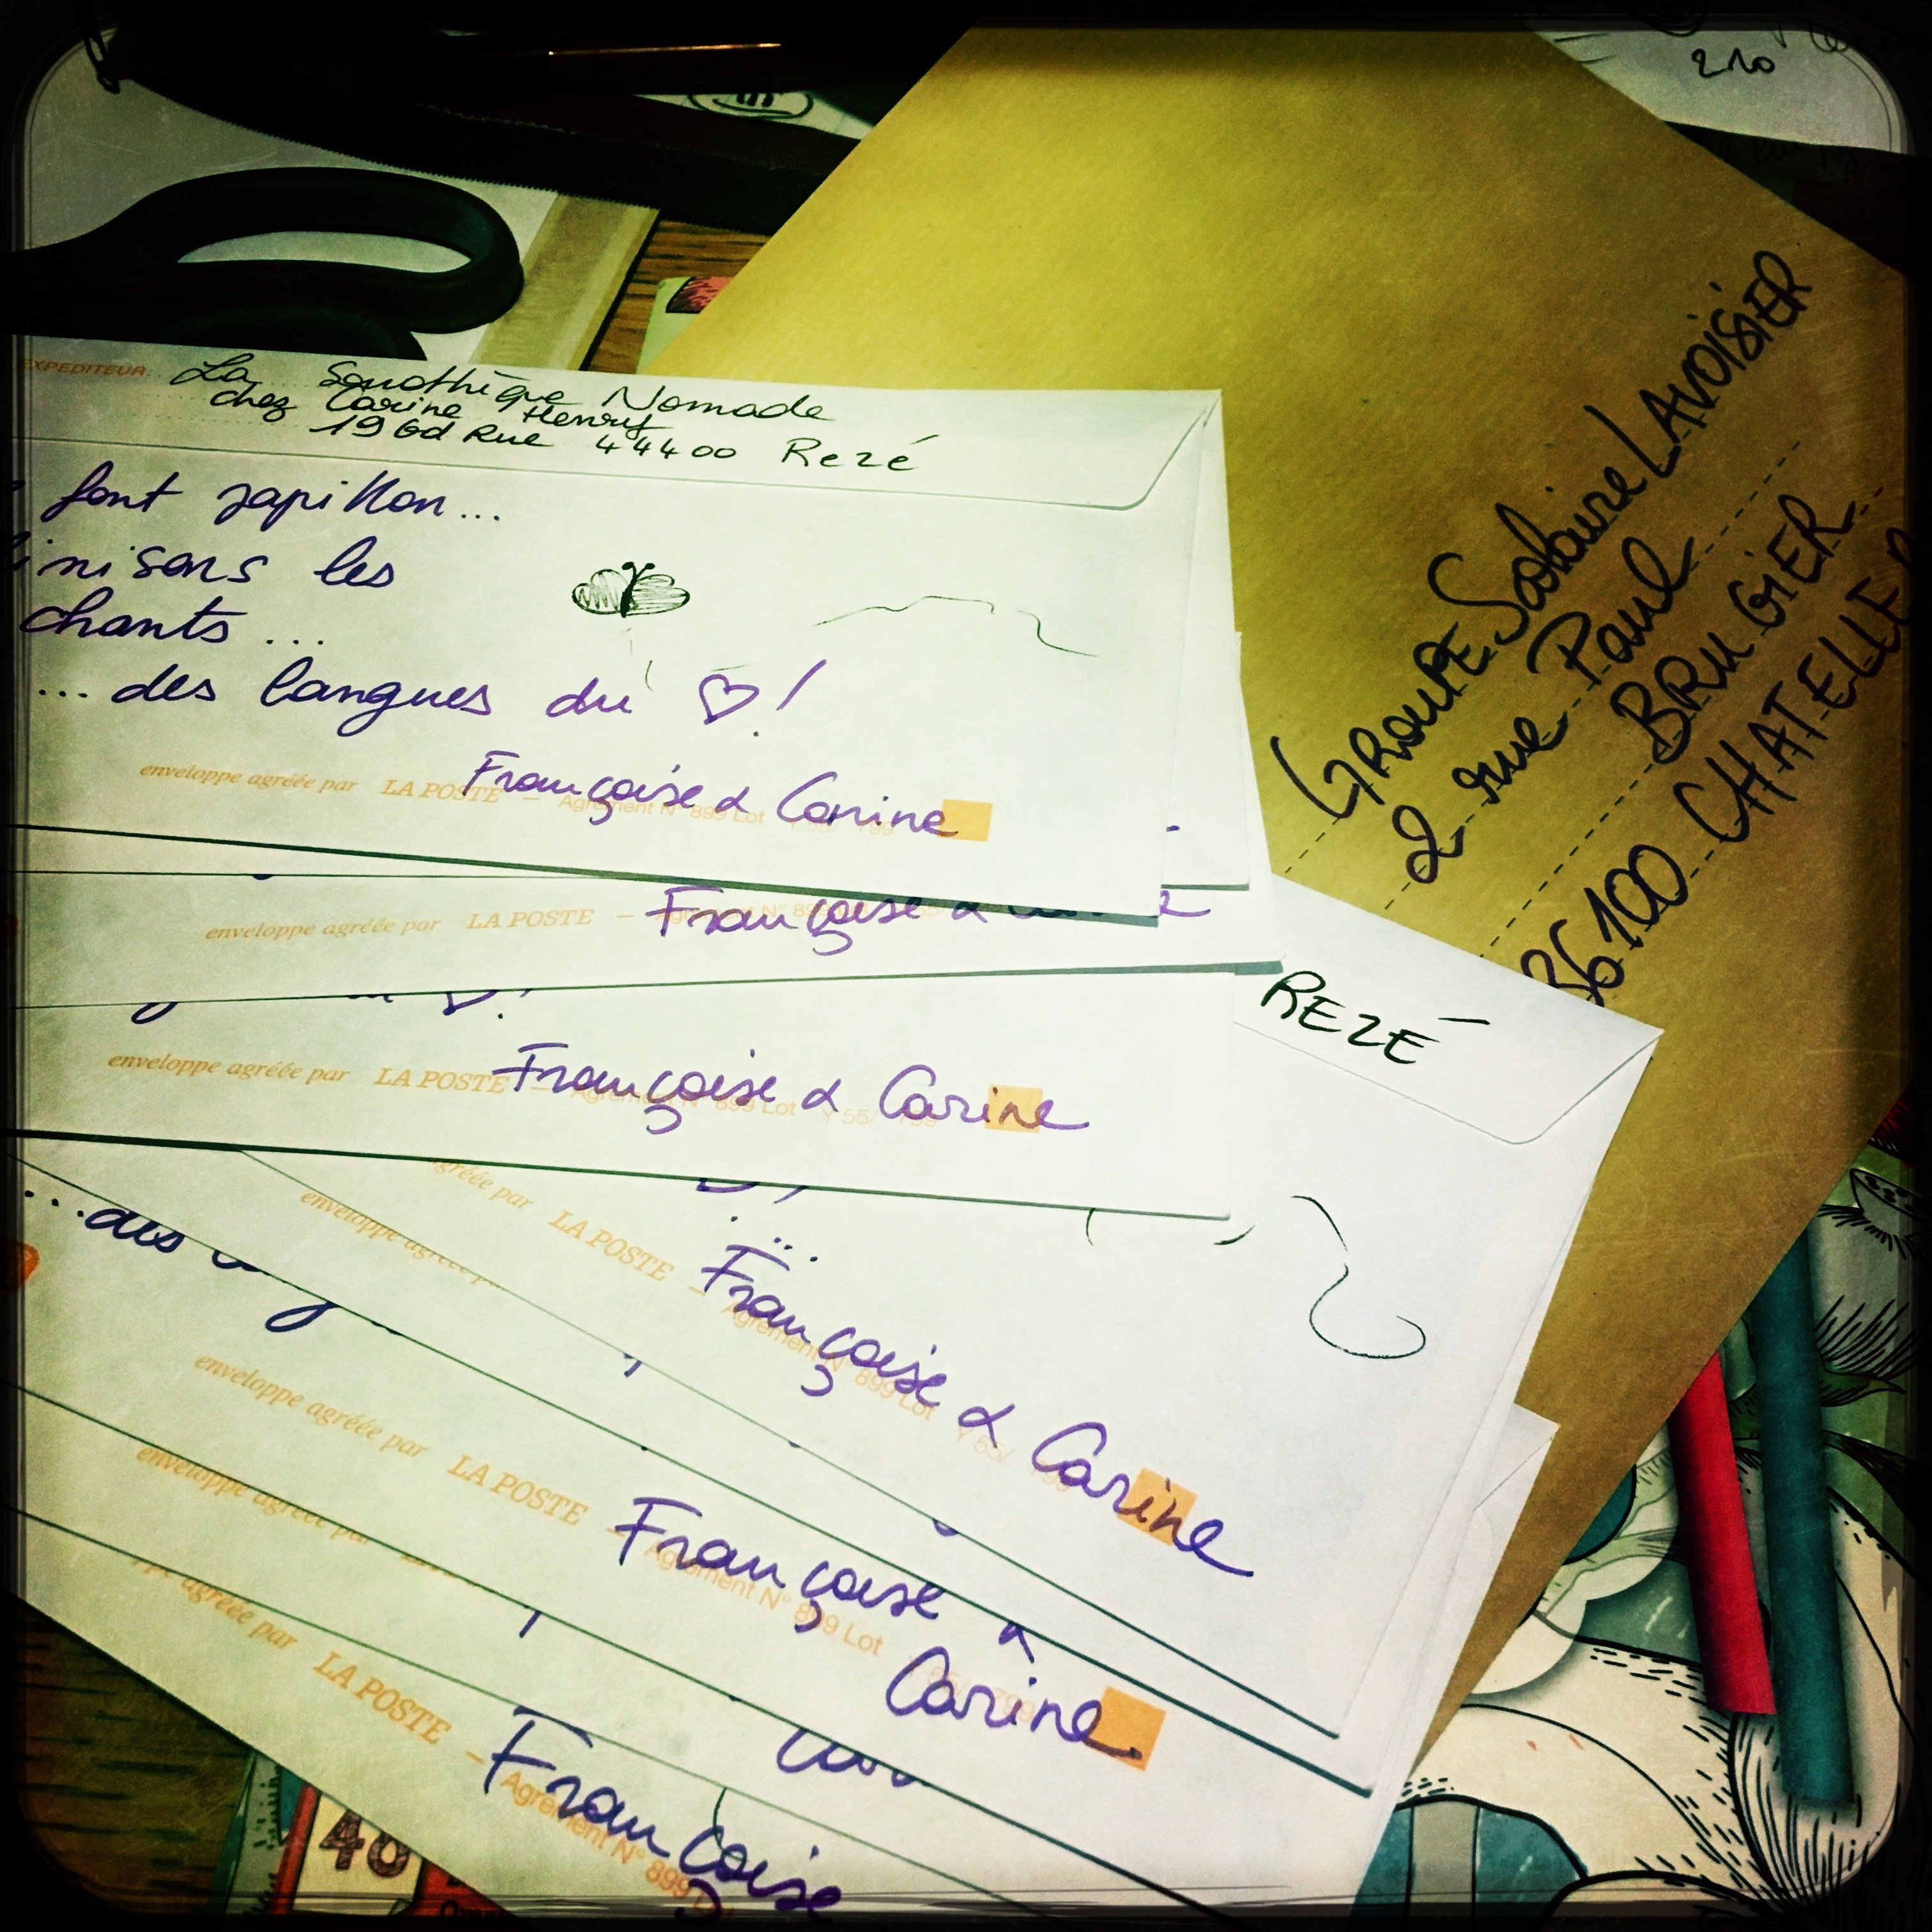 210
EXPEDITEUR: La Sonothèque Nomade
chez Carine Henry
19 Gd Rue 44400 Rezé
font papillon...
les
chants...
... des langues du ♡!
Françoise & Carine
enveloppe agréée par LA POSTE — Agrément N° 899 Lot Y 55/ 799
GROUPE Scolaire LAVOISIER
2 rue Paul
BRUGIER
86100 CHATELLER
enveloppe agréée par LA POSTE —
Françoise &
REZÉ
♡!
Françoise & Carine
enveloppe agréée par LA POSTE — Agrément N° 899 Lot Y 55/ 799
agréée par LA POSTE — Agrément N° 899 Lot Y 55/
Françoise & Carine
enveloppe agréée
...des
enveloppe agréée par LA POSTE — Agrément N° 899 Lot
Françoise &
Carine
enveloppe agréée par
agréée par LA POSTE — Agrément N° 899
Françoise
40